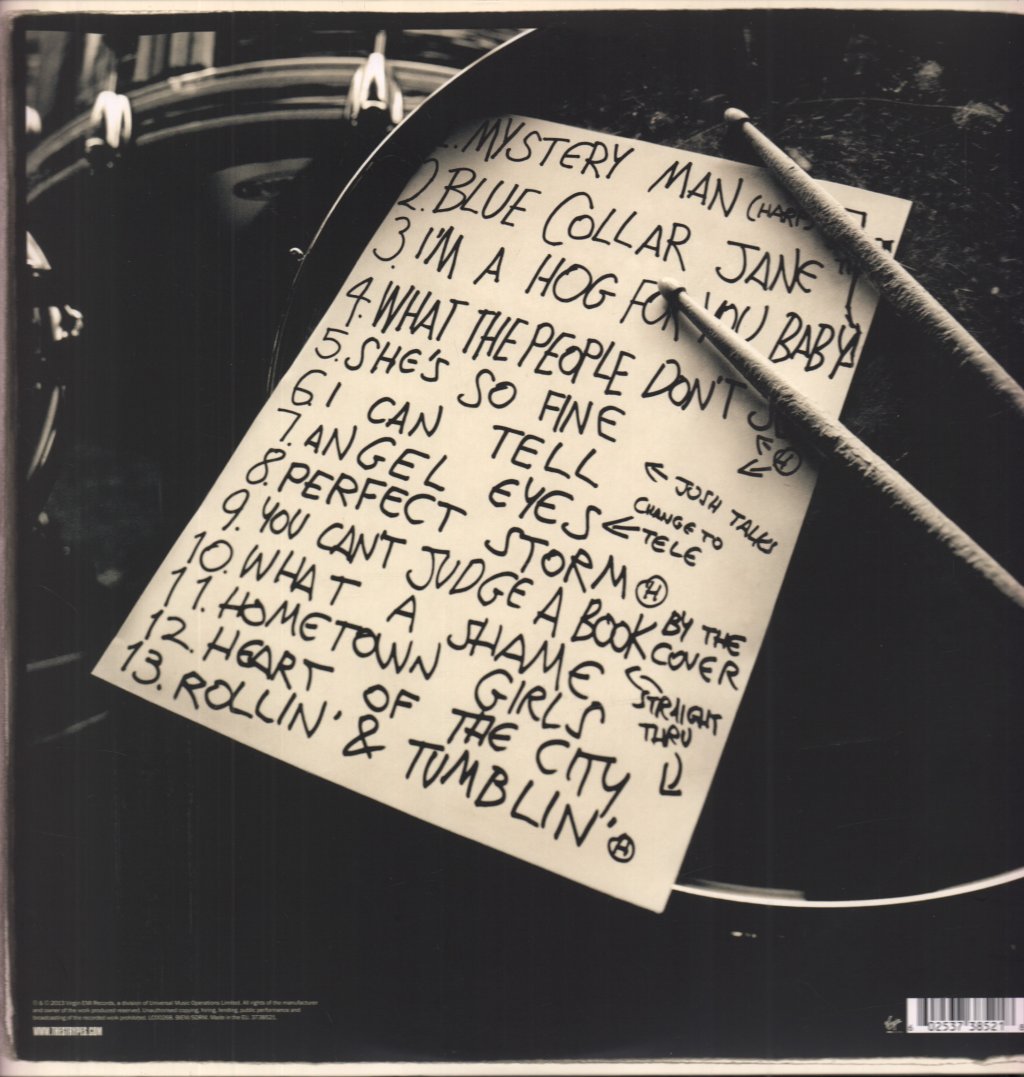 . MYSTERY MAN (HARP
2. BLUE COLLAR JANE
3. I'M A HOG FOR YOU BABY
4. WHAT THE PEOPLE DON'T
5. SHE'S SO FINE
6 I CAN TELL ← JOSH TALKS
7. ANGEL EYES ← CHANGE TO TELE
8. PERFECT STORM Ⓗ
9. YOU CAN'T JUDGE A BOOK BY THE COVER
10. WHAT A SHAME ← STRAIGHT THRU
11. HOMETOWN GIRLS
12. HEART OF THE CITY
13. ROLLIN' & TUMBLIN' Ⓗ
℗ & © 2013 Virgin EMI Records, a division of Universal Music Operations Limited. All rights of the manufacturer
and owner of the work produced reserved. Unauthorised copying, hiring, lending, public performance and
broadcasting of the recorded work prohibited. LC00268. BIEM/SDRM. Made in the EU. 3738521.
WWW.THESTRYPES.COM
Virgin
6 02537 38521 8